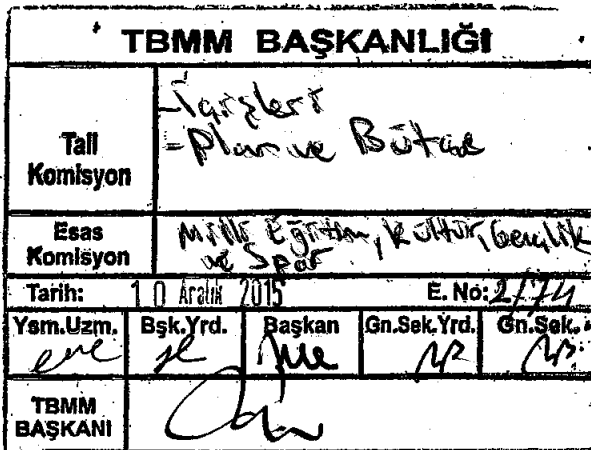 TBMM BAŞKANLIĞI
Tali
Komisyon
-İçişleri
-Plan ve Bütçe
Esas
Komisyon
Milli Eğitim, Kültür, Gençlik
ve Spor
Tarih: 10 Aralık 2015 E. No: 2/74
Ysm.Uzm. Bşk.Yrd. Başkan Gn.Sek.Yrd. Gn.Sek.
TBMM
BAŞKANI